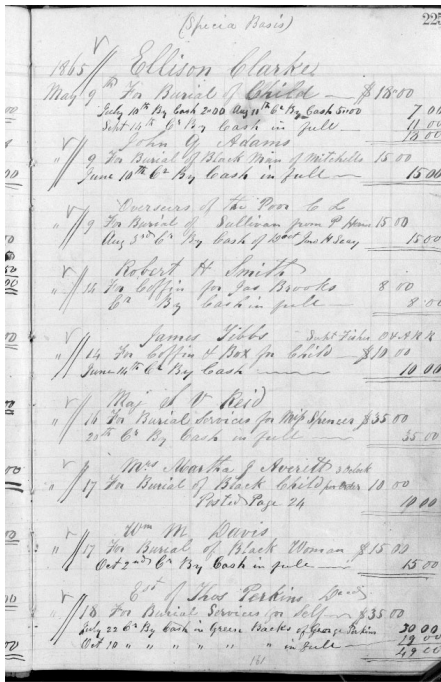 (Specia Basis) 225
1865 Ellison Clarke
May 9th For Burial of Child $18.00
July 10th By Cash 2.00 Aug 11th Cr By Cash 5.00 7 00
Sept 14th Cr By Cash in full 11 00
18 00
John Q Adams
" 9 For Burial of Black Man of Mitchells 15.00
June 10th Cr By Cash in full 15 00
Overseers of the Poor
" 9 For Burial of Sullivan from P House 15.00
Aug 3rd Cr By Cash of Jno H Seay 15.00
Robert H Smith
" 14 For Coffin for Jas Brooks 8 00
Cr By Cash in full 8 00
James Tibbs
" 14 For Coffin & Box for Child $10.00
June 14th Cr By Cash 10 00
Maj S V Reid
" 16 For Burial Services for Miss Spencer $35.00
20th Cr By Cash in full 35 00
Mrs Martha J Averett 3 Oclock
" 17 For Burial of Black Child per Order 10.00
Posted Page 24 10 00
Wm M Davis
" 17 For Burial of Black Woman $15.00
Oct 2nd Cr By Cash in full 15 00
Est of Thos Perkins Decd
" 18 For Burial Services for Self $35.00
July 22 Cr By Cash in Green Backs of George Perkins 30 00
Oct 10 " " " " " " in full 19 00
49 00
161